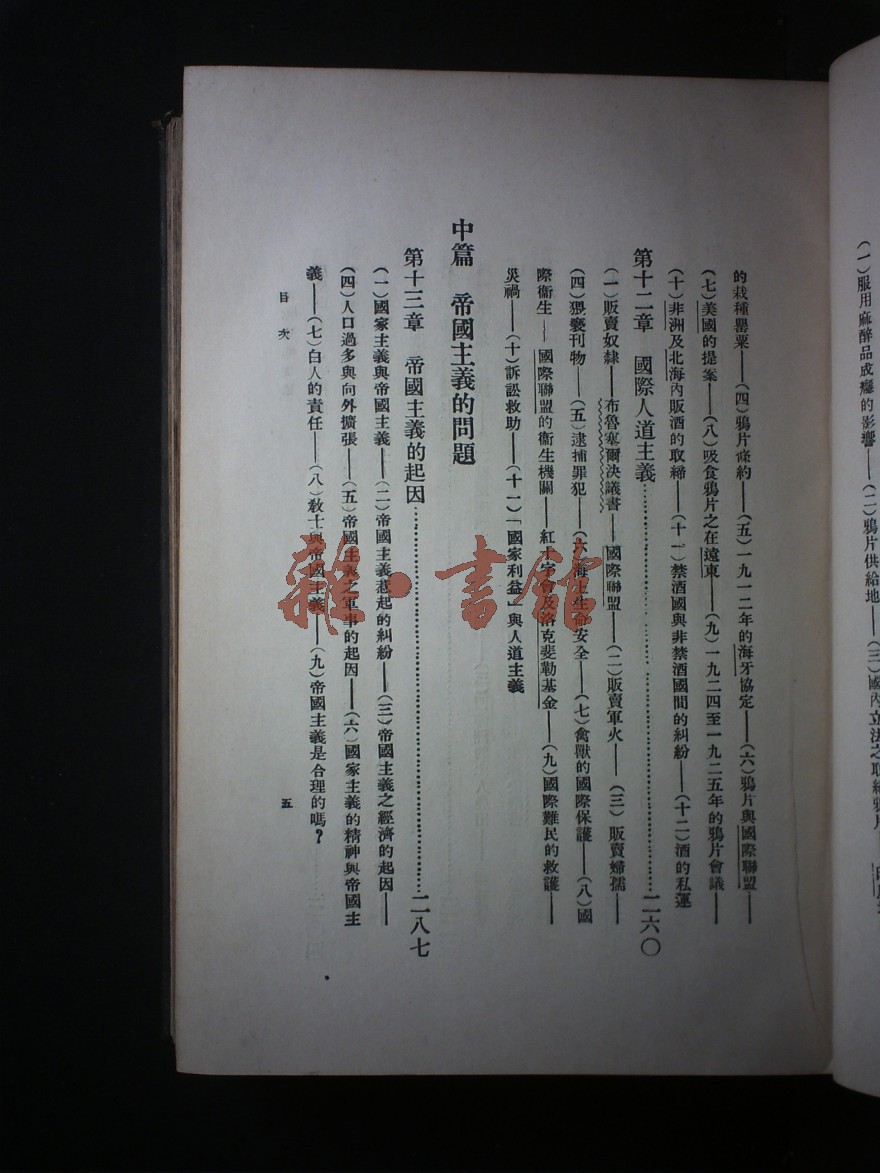 (一)服用麻醉品成癮的影響——(二)鴉片供給地——(三)國內立法之取締鴉片——
的栽種罌粟——(四)鴉片條約——(五)一九一二年的海牙協定——(六)鴉片與國際聯盟——
(七)美國的提案——(八)吸食鴉片之在遠東——(九)一九二四至一九二五年的鴉片會議——
(十)非洲及北海內販酒的取締——(十一)禁酒國與非禁酒國間的糾紛——(十二)酒的私運
第十二章 國際人道主義……二六〇
(一)販賣奴隸——布魯塞爾決議書——國際聯盟——(二)販賣軍火——(三)販賣婦孺——
(四)猥褻刊物——(五)逮捕罪犯——(六)海上生命安全——(七)禽獸的國際保護——(八)國
際衞生——國際聯盟的衞生機關——紅十字會及洛克斐勒基金——(九)國際難民的救護——
災禍——(十)訴訟救助——(十一)「國家利益」與人道主義
中篇 帝國主義的問題
第十三章 帝國主義的起因……二八七
(一)國家主義與帝國主義——(二)帝國主義惹起的糾紛——(三)帝國主義之經濟的起因——
(四)人口過多與向外擴張——(五)帝國主義之軍事的起因——(六)國家主義的精神與帝國主
義——(七)白人的責任——(八)教士與帝國主義——(九)帝國主義是合理的嗎?
目次 五
雜·書館